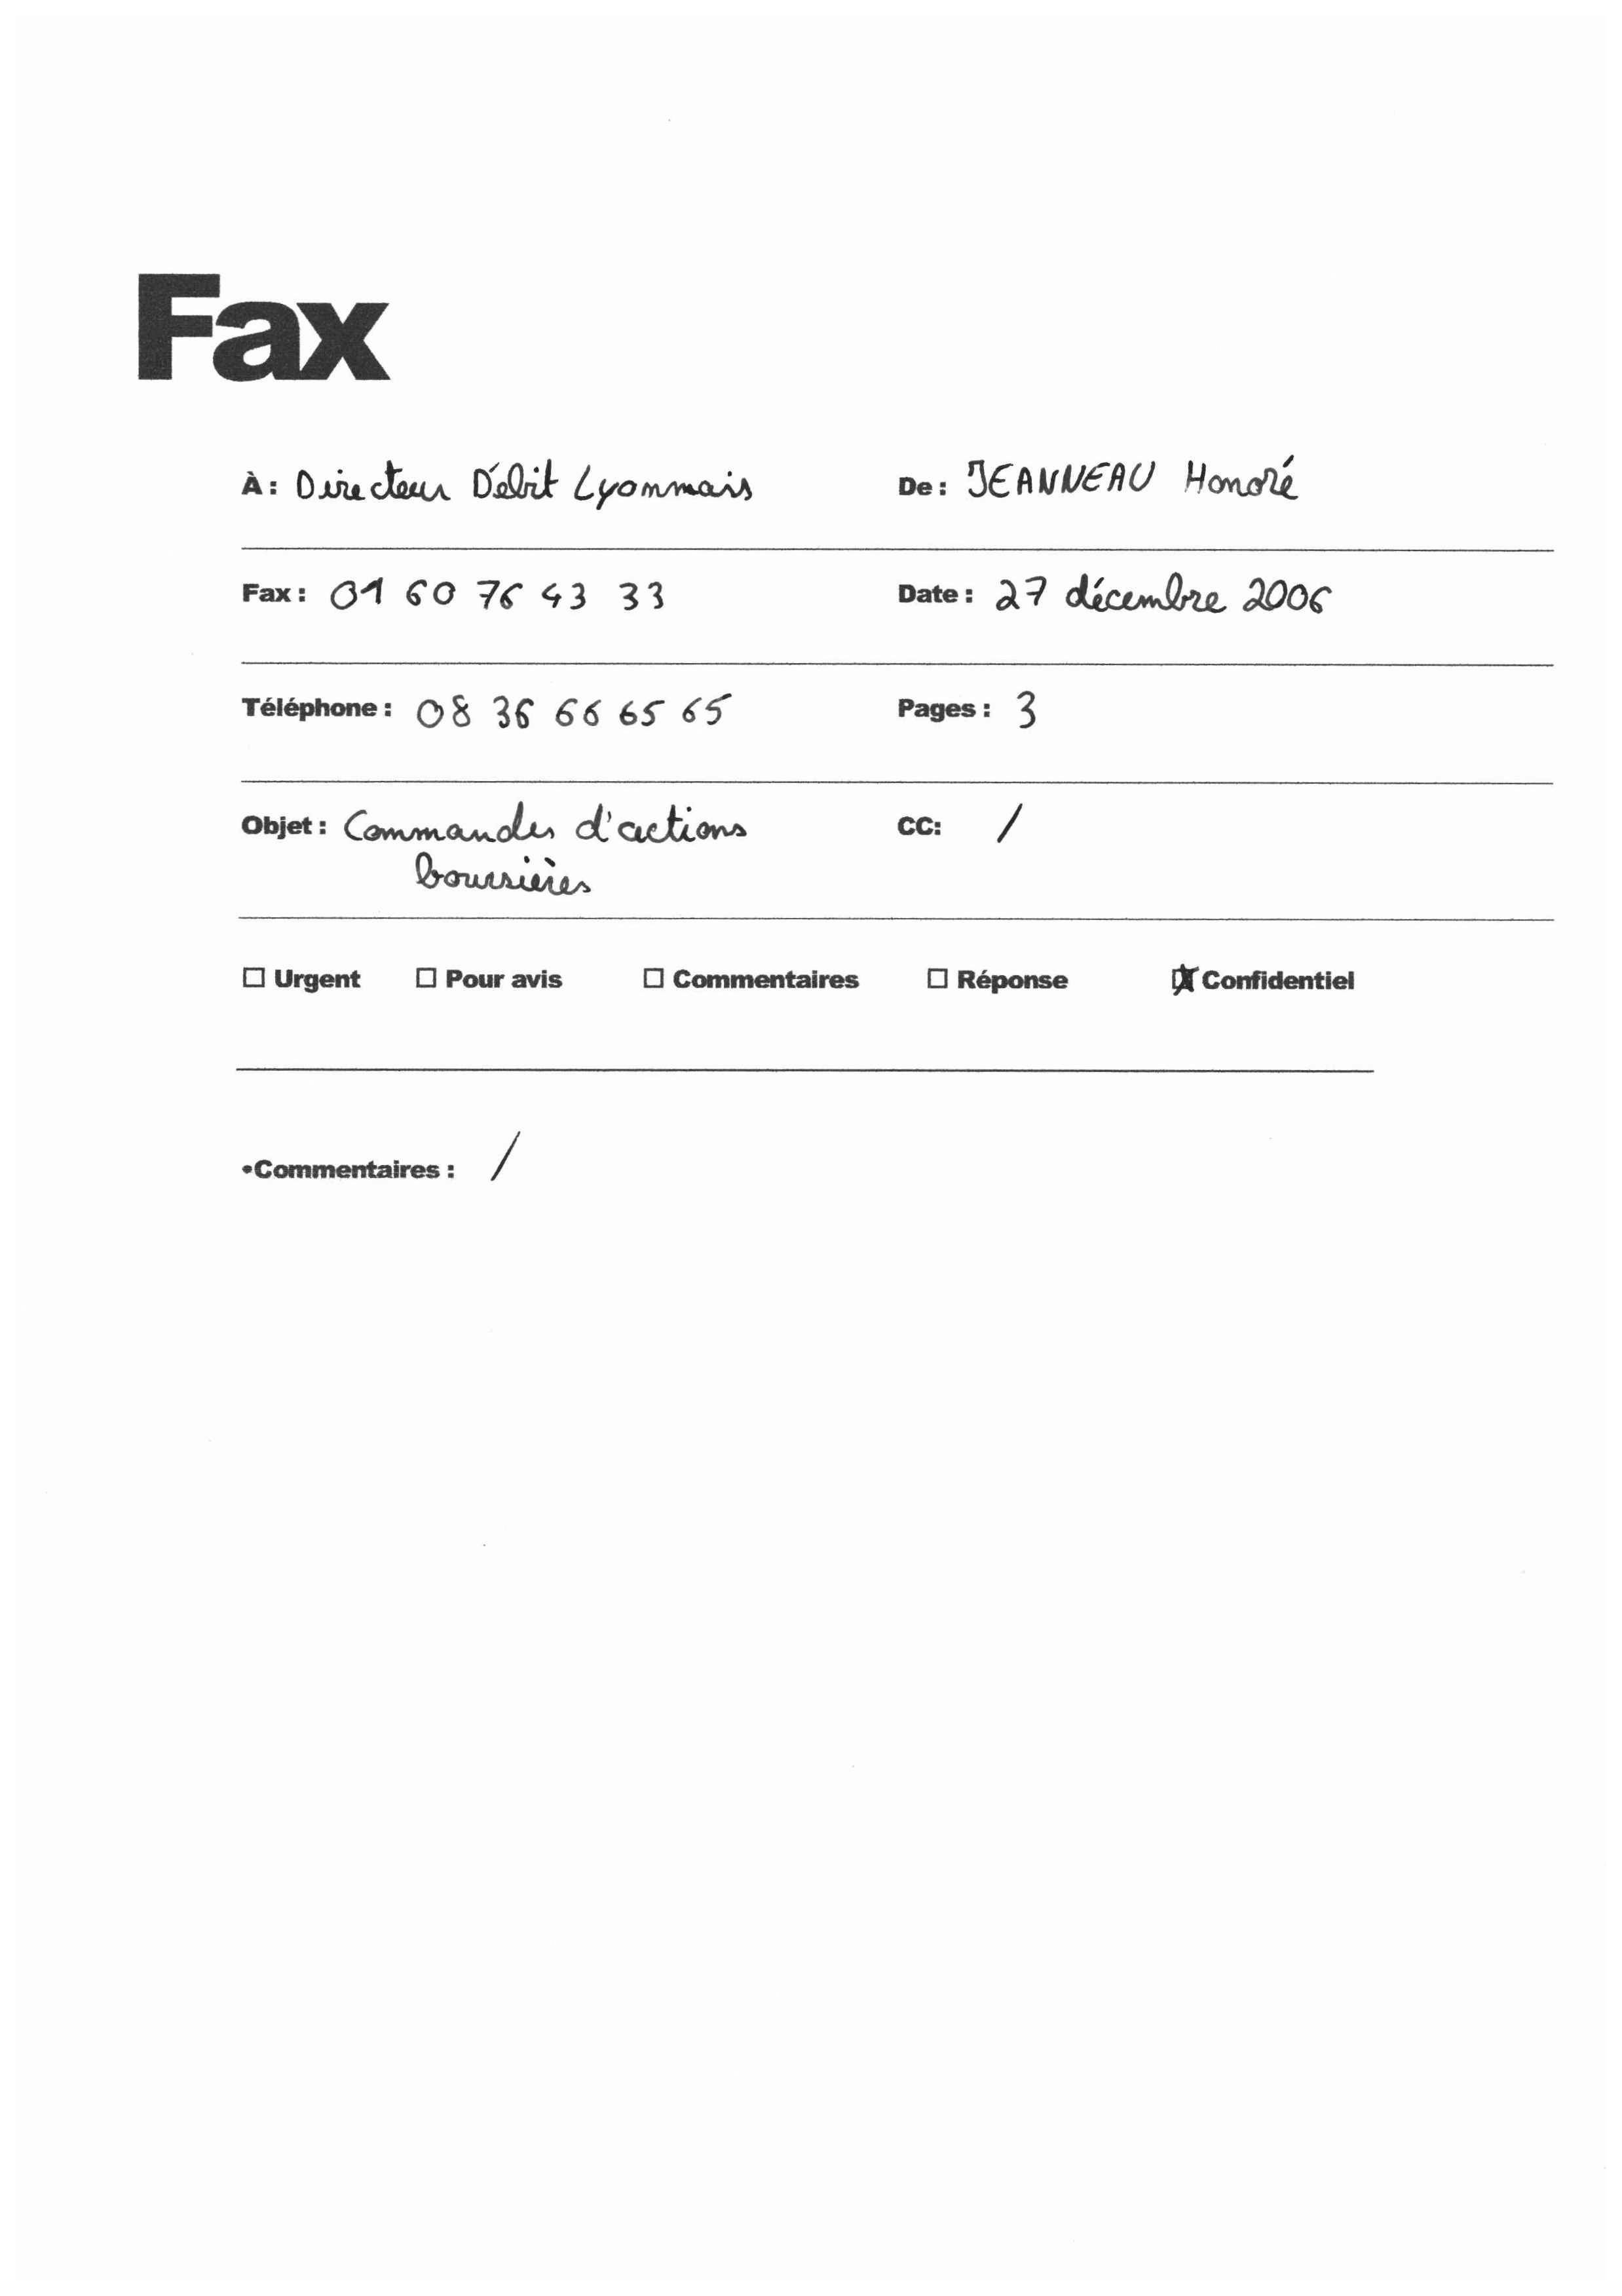 Fax
À : Directeur Débit Lyonnais De : JEANNEAU Honoré
Fax : 01 60 76 43 33 Date : 27 décembre 2006
Téléphone : 08 36 66 65 65 Pages : 3
Objet : Commandes d'actions CC: /
boursières
☐ Urgent ☐ Pour avis ☐ Commentaires ☐ Réponse ☒ Confidentiel
•Commentaires : /